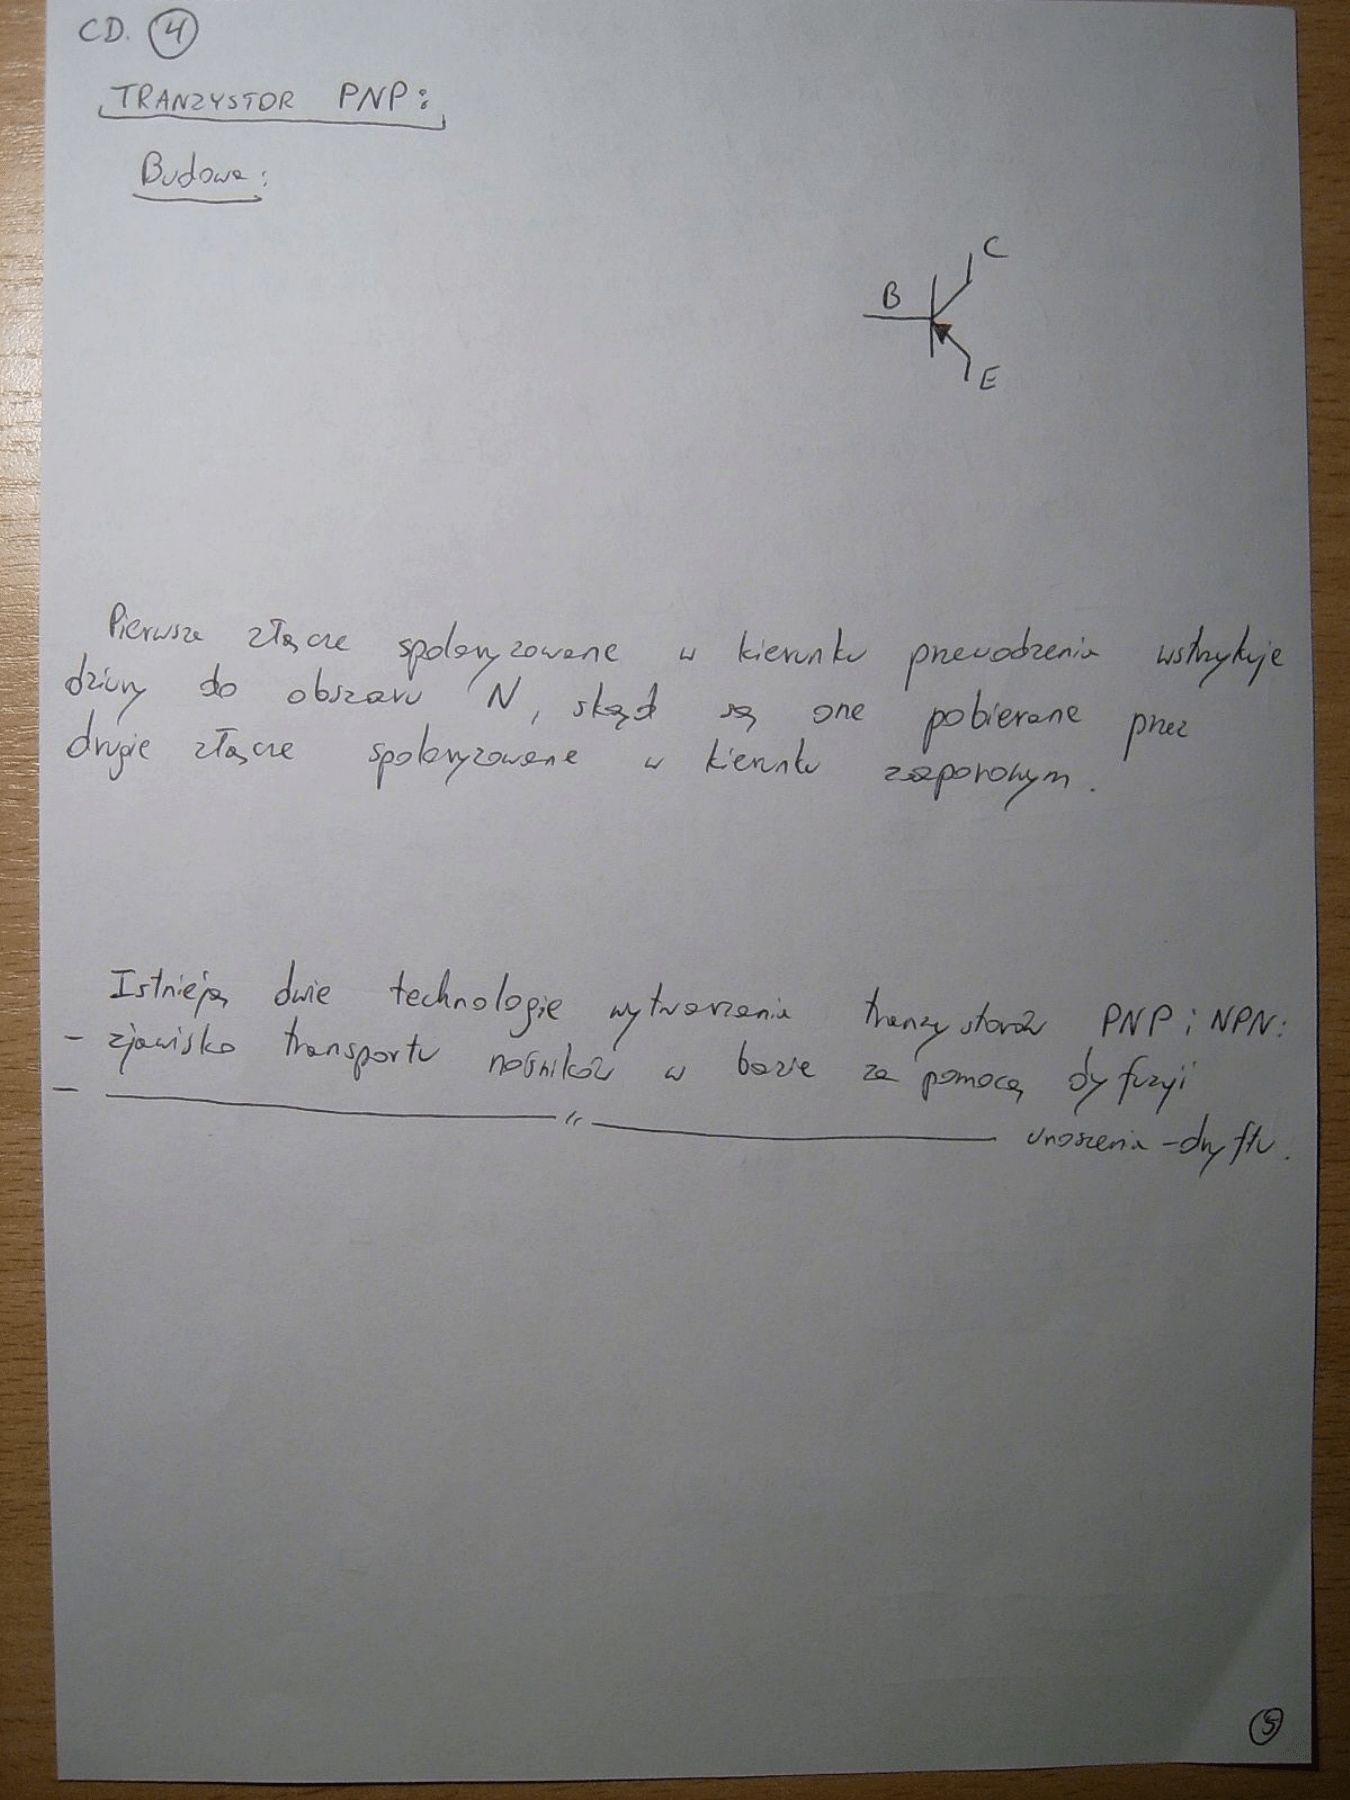 CD. 4
TRANZYSTOR PNP:
Budowa:
C
B
E
Pierwsze złącze spolaryzowane w kierunku przewodzenia wstrzykuje
dziury do obszaru N, skąd są one pobierane przez
drugie złącze spolaryzowane w kierunku zaporowym.
Istnieją dwie technologie wytwarzania tranzystorów PNP i NPN:
- zjawisko transportu nośników w bazie za pomocą dyfuzji
- ——————— " ——————— unoszenia - dryftu.
5